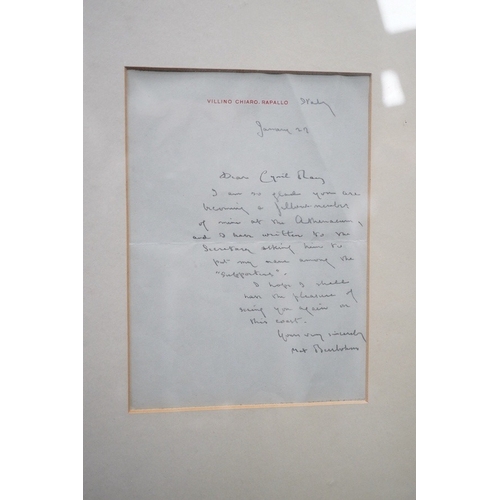 VILLINO CHIARO·RAPALLO Italy
January 23
Dear Cyril Ray
I am so glad you are
becoming a fellow-member
of mine at the Athenaeum,
and I have written to the
Secretary asking him to
put my name among the
"supporters".
I hope I shall
have the pleasure of
seeing you again on
this coast.
Yours very sincerely
Max Beerbohm